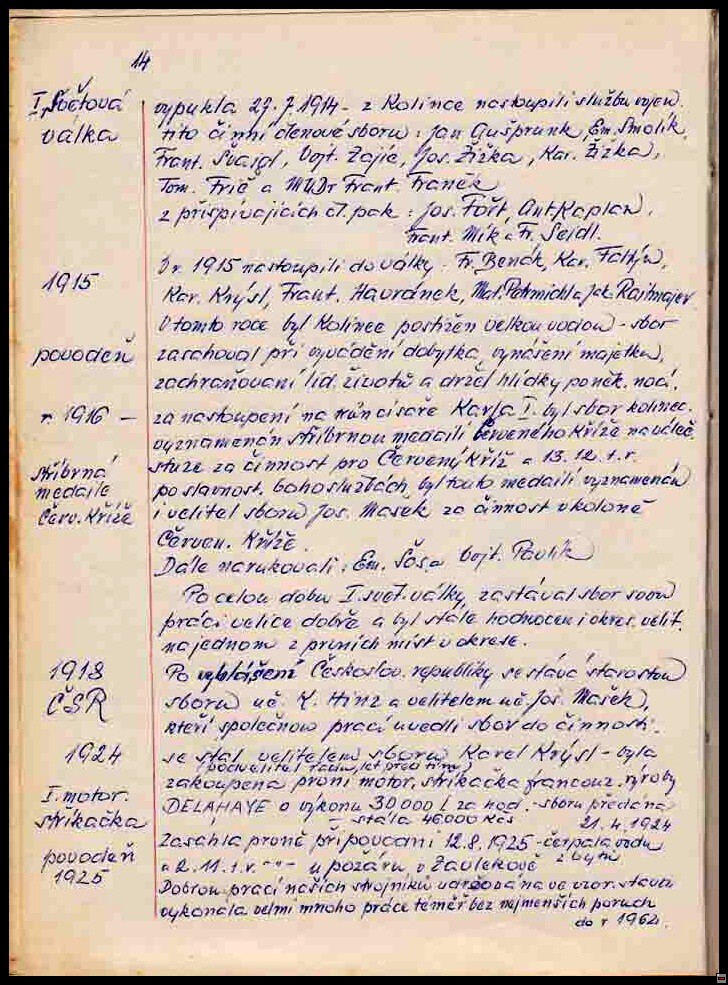 14
I. Světová válka
vypukla 27.7.1914 - z Kolince nastoupili službu vojen.
tito činní členové sboru: Jan Gušprunk, Em. Smolík,
Frant. Švaigl, Vojt. Zajíc, Jos. Žižka, Kar. Žižka,
Tom. Frič a MVDr Frant. Franěk
z přispívajících čl. pak: Jos. Fořt, Ant. Kaplan,
Frant. Mik a Fr. Seidl.
1915
V r. 1915 nastoupili do války: Fr. Benák, Kar. Faltýn,
Kar. Krýsl, Frant. Havránek, Mat. Petrmichl a Jak. Raitmajer
V tomto roce byl Kolinec postižen velkou vodou - sbor
povodeň
zasahoval při vyvádění dobytka, vynášení majetku,
zachraňování lid. životů a držel hlídky poněk. nocí.
r. 1916 -
za nastoupení na trůn císaře Karla I. byl sbor kolinec.
vyznamenán stříbrnou medailí Červeného Kříže na váleč.
stříbrná medaile Červ. Kříže
stuze za činnost pro Červený Kříž a 13.12. t.r.
po slavnost. bohoslužbách, byl touto medailí vyznamenán
i velitel sboru Jos. Mašek za činnost v koloně
Červen. Kříže.
Dále narukovali: Em. Šos a Vojt. Pavlík
Po celou dobu I. svět. války, zastával sbor svou
práci velice dobře a byl stále hodnocen i okres. velit.
na jednom z prvních míst v okrese.
1918 ČSR
Po vyhlášení Českoslov. republiky se stává starostou
sboru uč. K. Hinz a velitelem uč. Jos. Mašek,
kteří společnou prací uvedli sbor do činnosti.
1924
se stal velitelem sboru Karel Krýsl - byla
podvelitel řadu let před tím
I. motor. stříkačka
zakoupena první motor. stříkačka francouz. výroby
DELAHAYE o výkonu 30000 l za hod. - sboru předána
- stála 46000 Kčs 21.4.1924
povodeň 1925
Zasáhla prvně při povodni 12.8.1925 - čerpala vodu
z bytů
a 2.11. t.r. -"- u požáru v Zavlekově
Dobrou prací našich strojníků udržována ve vzor. stavu
vykonala velmi mnoho práce téměř bez nejmenších poruch
do r 1962.